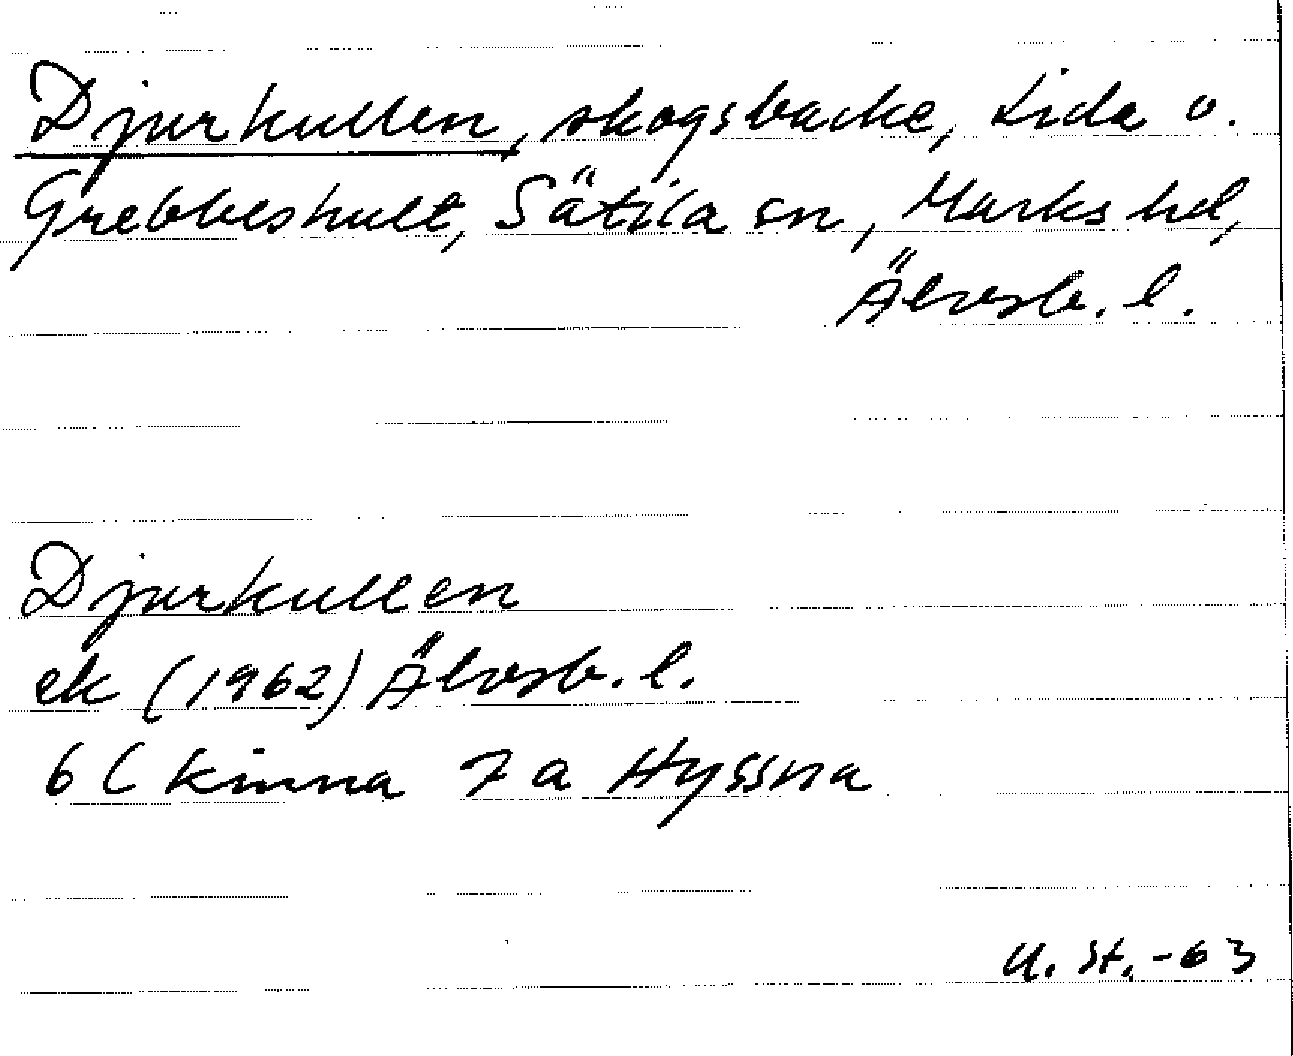 Djurkullen, skogsbacke, Lida o.
Grebbeshult, Sätila sn, Marks hd,
Älvsb. l.
Djurkullen
ek (1962) Älvsb. l.
6 C Kinna 7 a Hyssna
U. St. -63